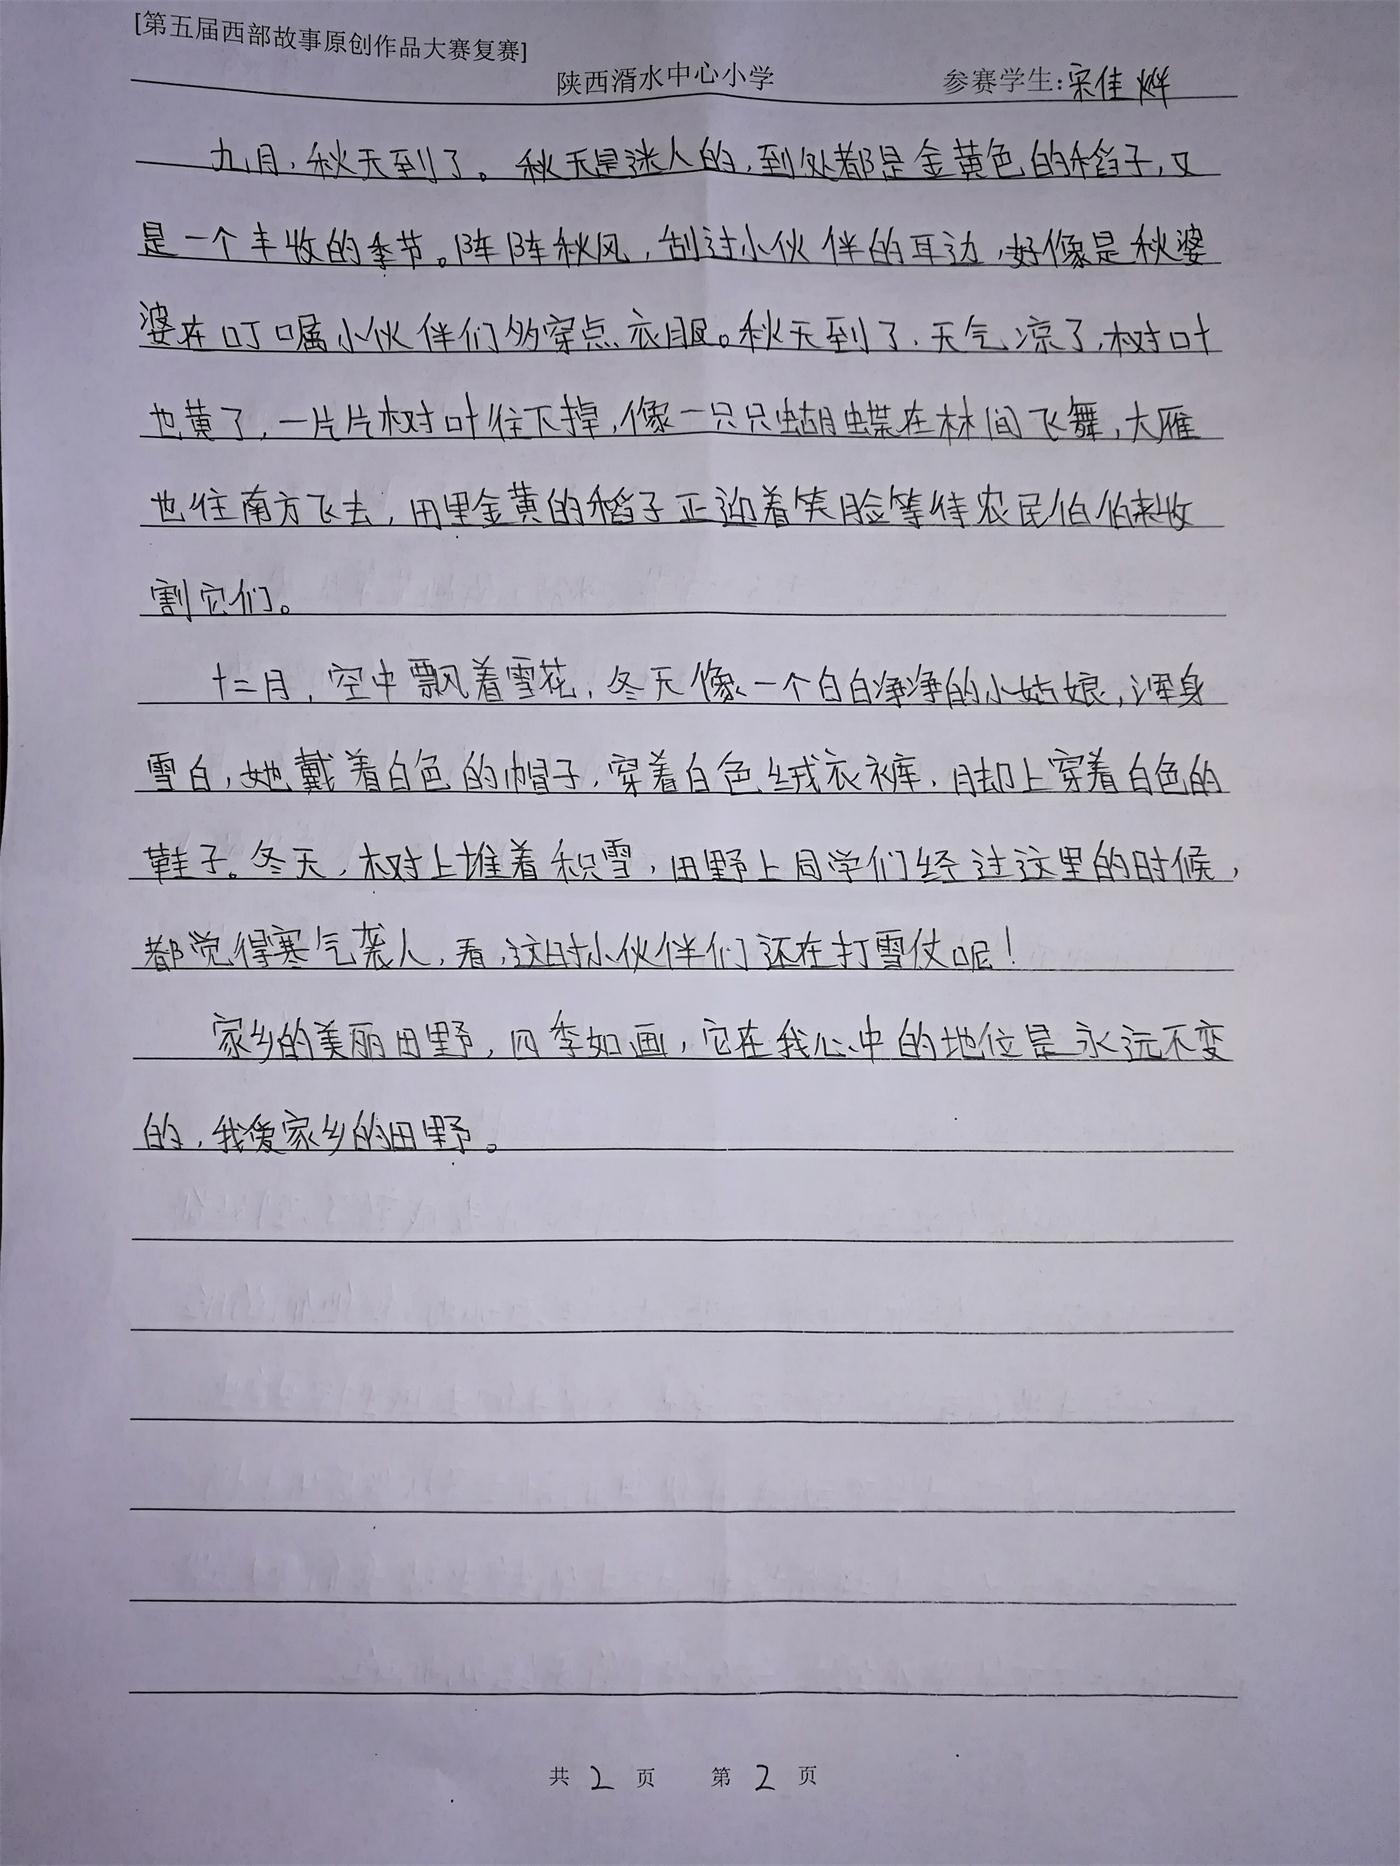 [第五届西部故事原创作品大赛复赛]
陕西湑水中心小学 参赛学生:宋佳烨
九月,秋天到了。秋天是迷人的,到处都是金黄色的稻子,又
是一个丰收的季节。阵阵秋风,刮过小伙伴的耳边,好像是秋婆
婆在叮嘱小伙伴们多穿点衣服。秋天到了,天气凉了,树叶
也黄了,一片片树叶往下掉,像一只只蝴蝶在林间飞舞,大雁
也往南方飞去,田里金黄的稻子正迎着笑脸等待农民伯伯来收
割它们。
十二月,空中飘着雪花,冬天像一个白白净净的小姑娘,浑身
雪白,她戴着白色的帽子,穿着白色绒衣裤,脚上穿着白色的
鞋子。冬天,树上堆着积雪,田野上同学们经过这里的时候,
都觉得寒气袭人,看,这时小伙伴们还在打雪仗呢!
家乡的美丽田野,四季如画,它在我心中的地位是永远不变
的,我爱家乡的田野。
共 2 页 第 2 页